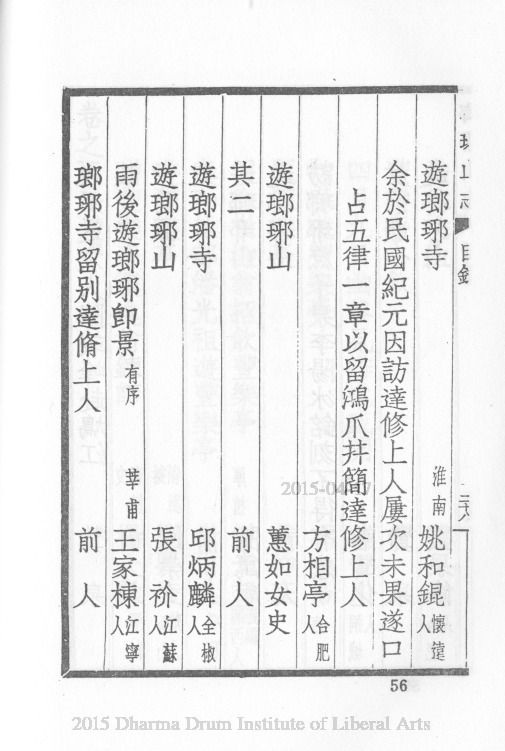 瑯琊山志 目錄 三六
遊瑯琊寺 淮南 姚和錕 懷遠人
余於民國紀元因訪達修上人屢次未果遂口
占五律一章以留鴻爪并簡達修上人
方相亭 合肥人
遊瑯琊山 蕙如女史
其二 前人
遊瑯琊寺 邱炳麟 全椒人
遊瑯琊山 張礽 江蘇人
雨後遊瑯琊卽景 有序 莘甫 王家棟 江寧人
瑯琊寺留別達脩上人 前人
56
2015-04-07
2015 Dharma Drum Institute of Liberal Arts